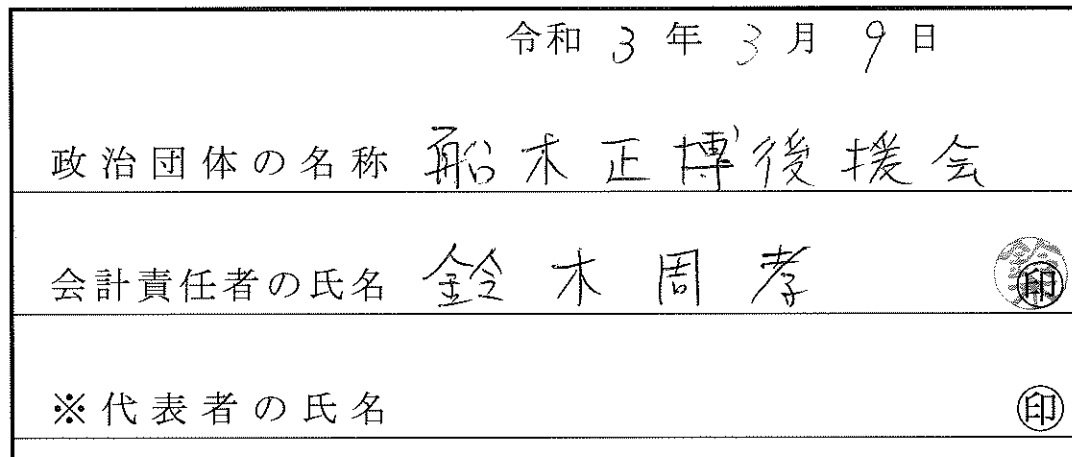 令和 3 年 3 月 9 日
政治団体の名称 船木正博後援会
会計責任者の氏名 鈴木周孝 ㊞
※代表者の氏名 ㊞